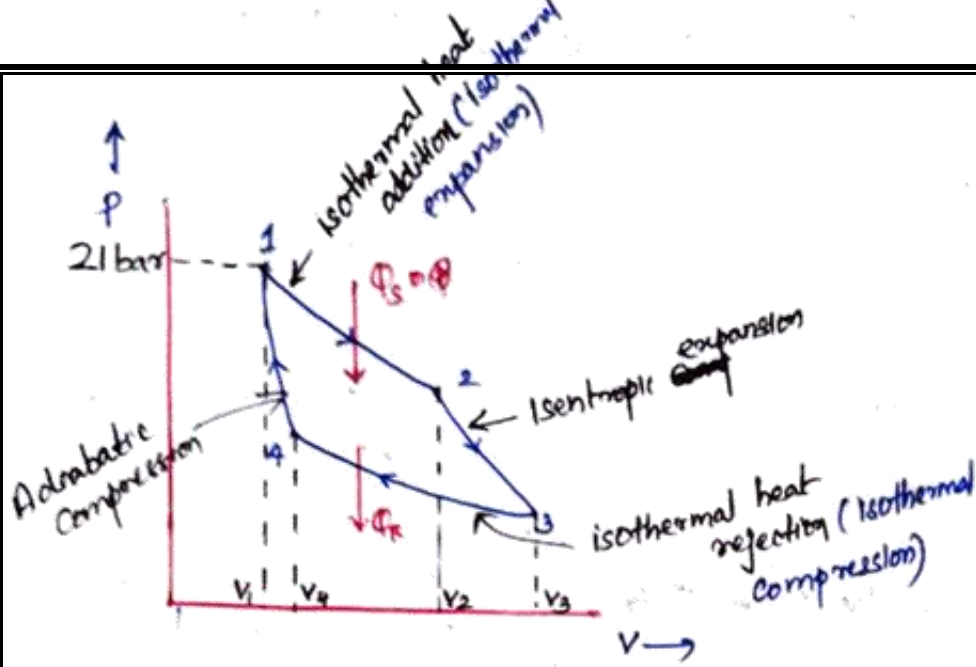 isothermal heat
addition (Isothermal
expansion)
P
21 bar
1
Qs
2
Isentropic expansion
Adiabatic
compression
4
QR
3
isothermal heat
rejection (isothermal
compression)
V1
V4
V2
V3
V